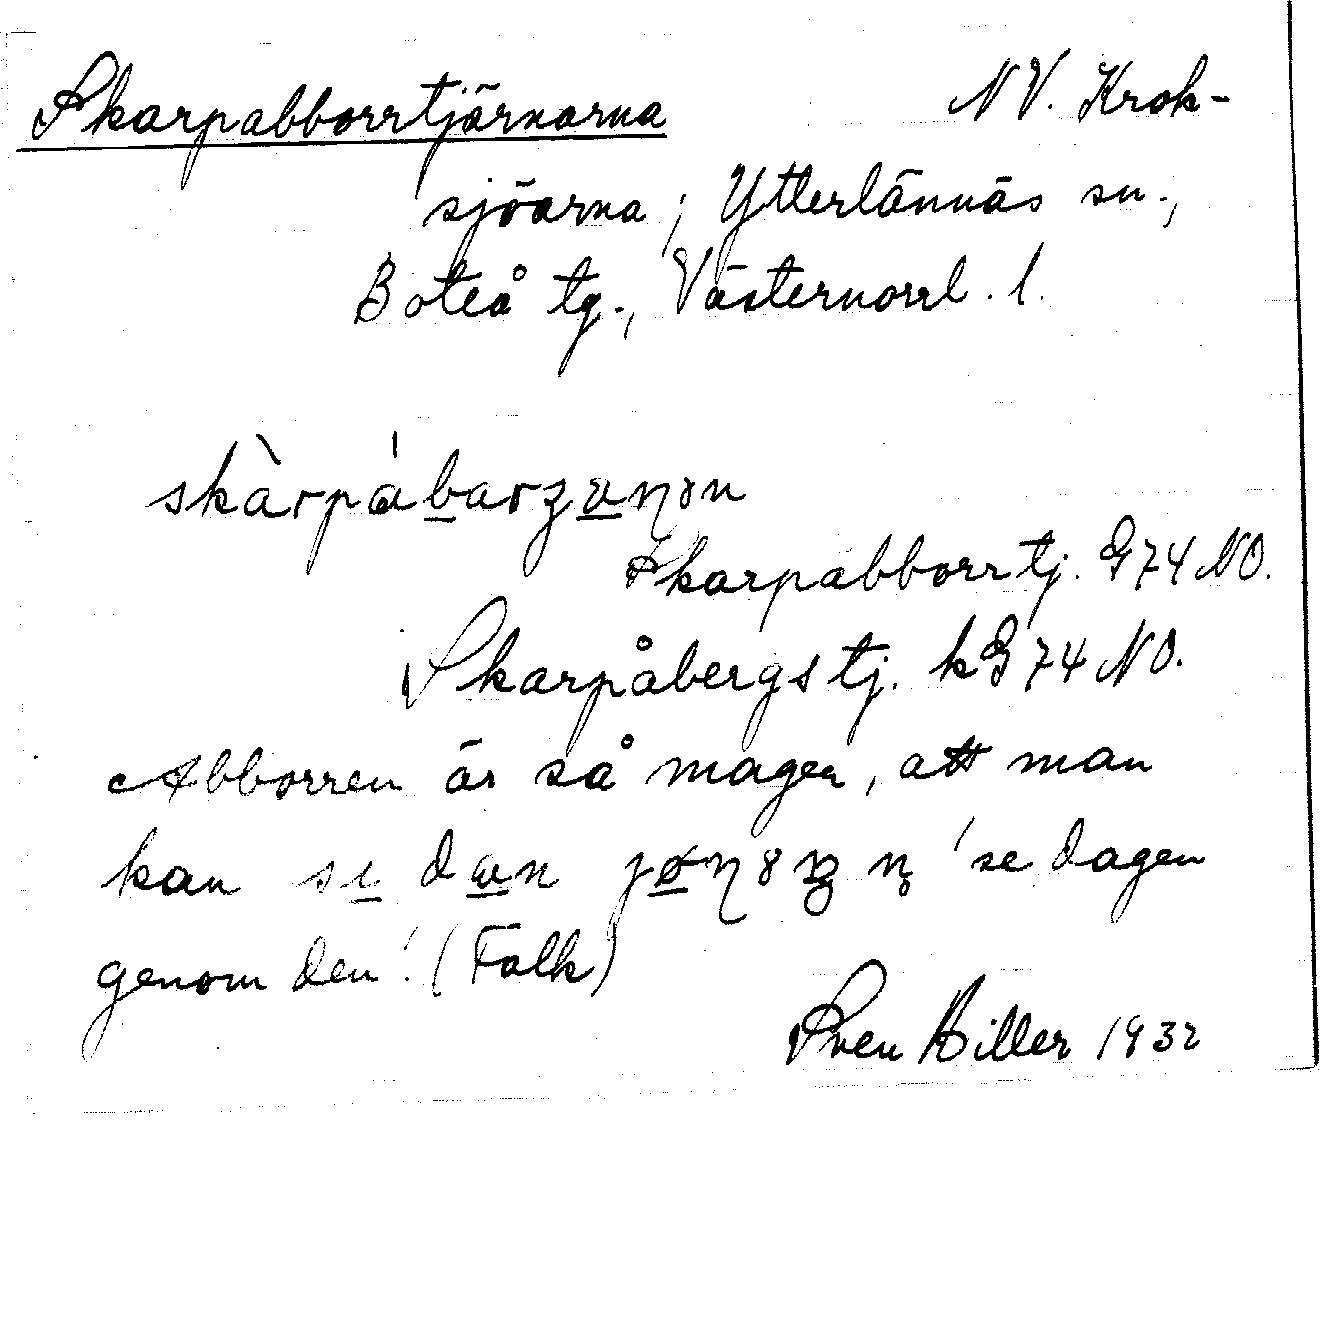 Skarpabborrtjärnarna NV. Krok-
sjöarna; Ytterlännäs sn.,
Boteå tg., Västernorrl. l.
Skarpabborrtj. G74 NO.
Skarpåbergstj. kG74 NO.
Abborren är så mager, att man
kan 'se dagen
genom den'. (Falk)
Sven Hiller 1932